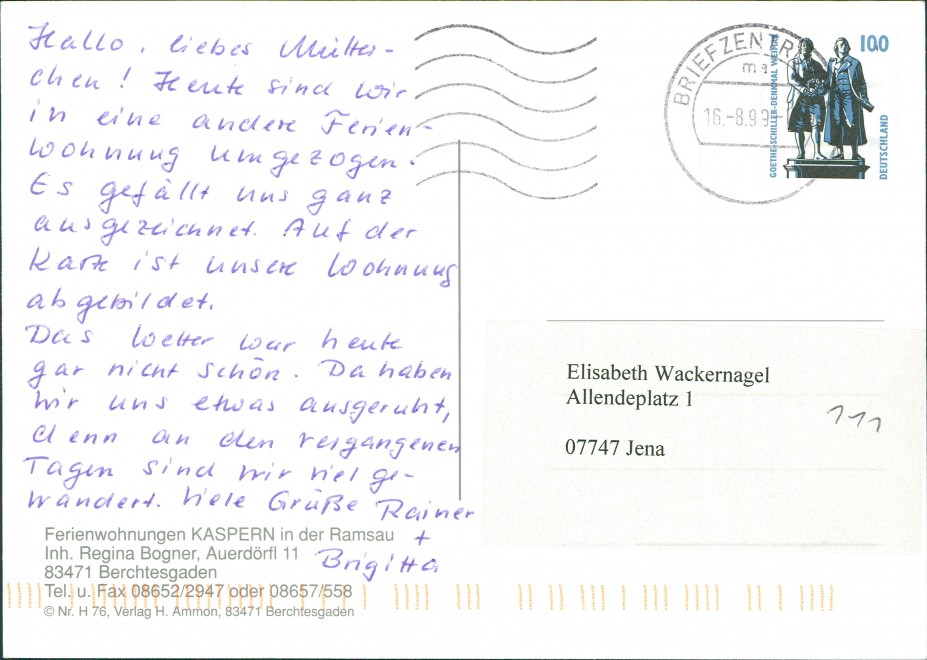 Hallo, liebes Mütter-
chen! Heute sind wir
in eine andere Ferien-
wohnung umgezogen.
Es gefällt uns ganz
ausgezeichnet. Auf der
Karte ist unsere Wohnung
abgebildet.
Das Wetter war heute
gar nicht schön. Da haben
wir uns etwas ausgeruht,
denn an den vergangenen
Tagen sind wir viel ge-
wandert. Viele Grüße Rainer
+
Brigitta
Ferienwohnungen KASPERN in der Ramsau
Inh. Regina Bogner, Auerdörfl 11
83471 Berchtesgaden
Tel. u. Fax 08652/2947 oder 08657/558
© Nr. H 76, Verlag H. Ammon, 83471 Berchtesgaden
BRIEFZENTR
16.-8.99
100
GOETHE-SCHILLER-DENKMAL WEIMAR
DEUTSCHLAND
Elisabeth Wackernagel
Allendeplatz 1
111
07747 Jena